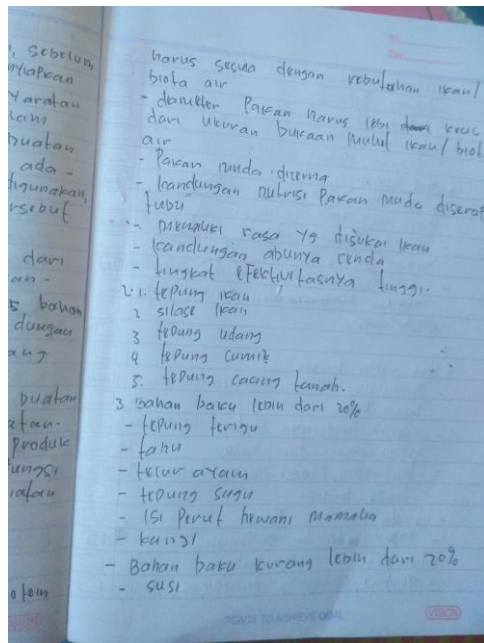 , sebelum
nyiapkan
yaratan
lam
buatan
ada -
digunakan,
rsebut
dari
an.
5 bahan
dungan
ang
buatan
atan.
Produk
ungsi
No.
Date.
harus sesuia dengan kebutuhan ikan/
biota air
- diameter Pakan harus lebi kecil
dari ukuran bukaan mulut ikau/biot
air
- Pakan muda dicerna
- kandungan nutrisi Pakan muda diserap
tubu
- memiliki rasa yg disukai ikau
- kandungan abunya renda
- tingkat efektivitasnya tinggi.
2. 1. tepung ikan
2 silase ikan
3 tepung udang
4 tepung cumi
5. tepung cacing tanah.
3 bahan baku lebih dari 20%
- tepung terigu
- tahu
- telur ayam
- tepung sagu
- isi Perut hewani mamalia
- kangi
- Bahan baku kurang lebih dari 20%
- susi
VISION
VISION